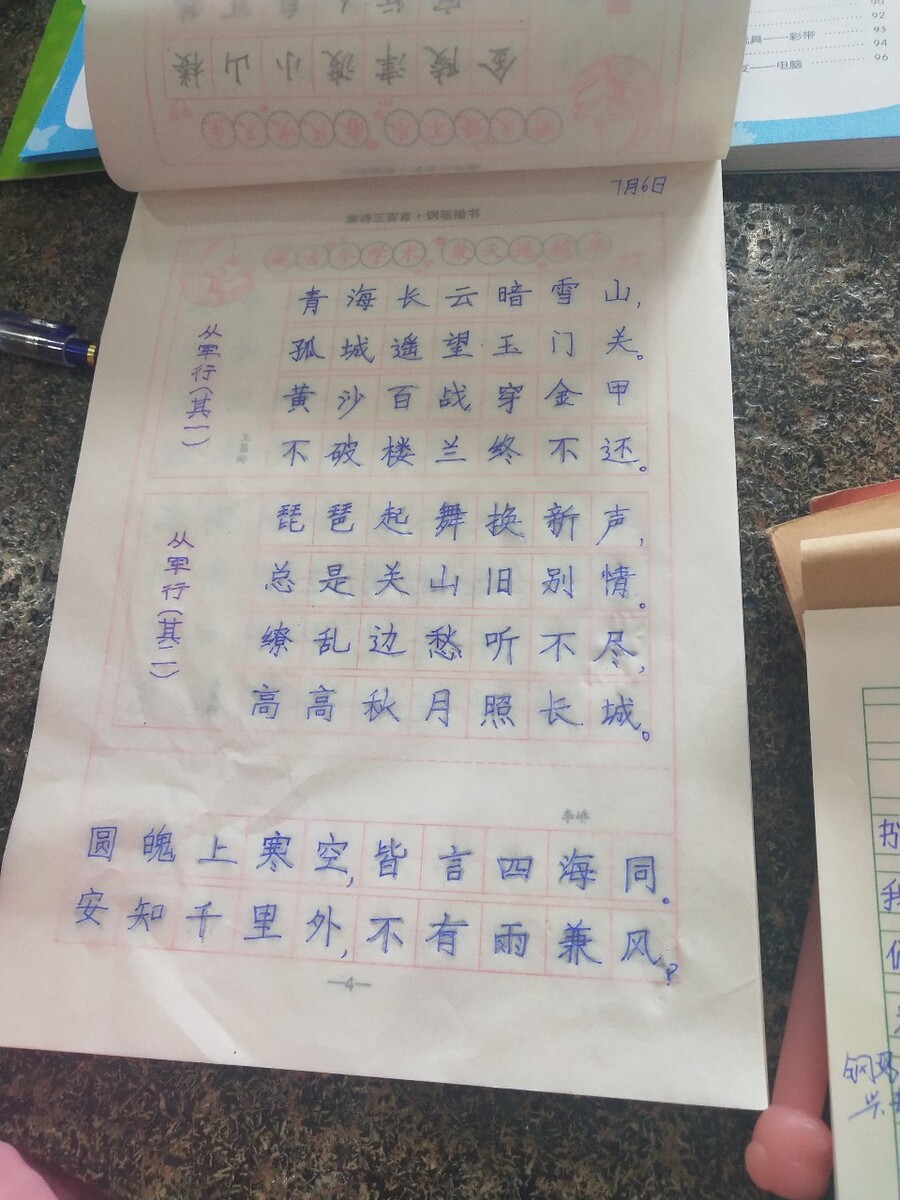 金陵津渡小山楼
90
92
具——彩带 93
94
——电脑 96
7月6日
唐诗三百首·钢笔楷书
从军行(其一)
王昌龄
青海长云暗雪山,
孤城遥望玉门关。
黄沙百战穿金甲
不破楼兰终不还。
从军行(其二)
琵琶起舞换新声,
总是关山旧别情。
缭乱边愁听不尽,
高高秋月照长城。
李峤
圆魄上寒空,皆言四海同。
安知千里外,不有雨兼风?
—4—
我